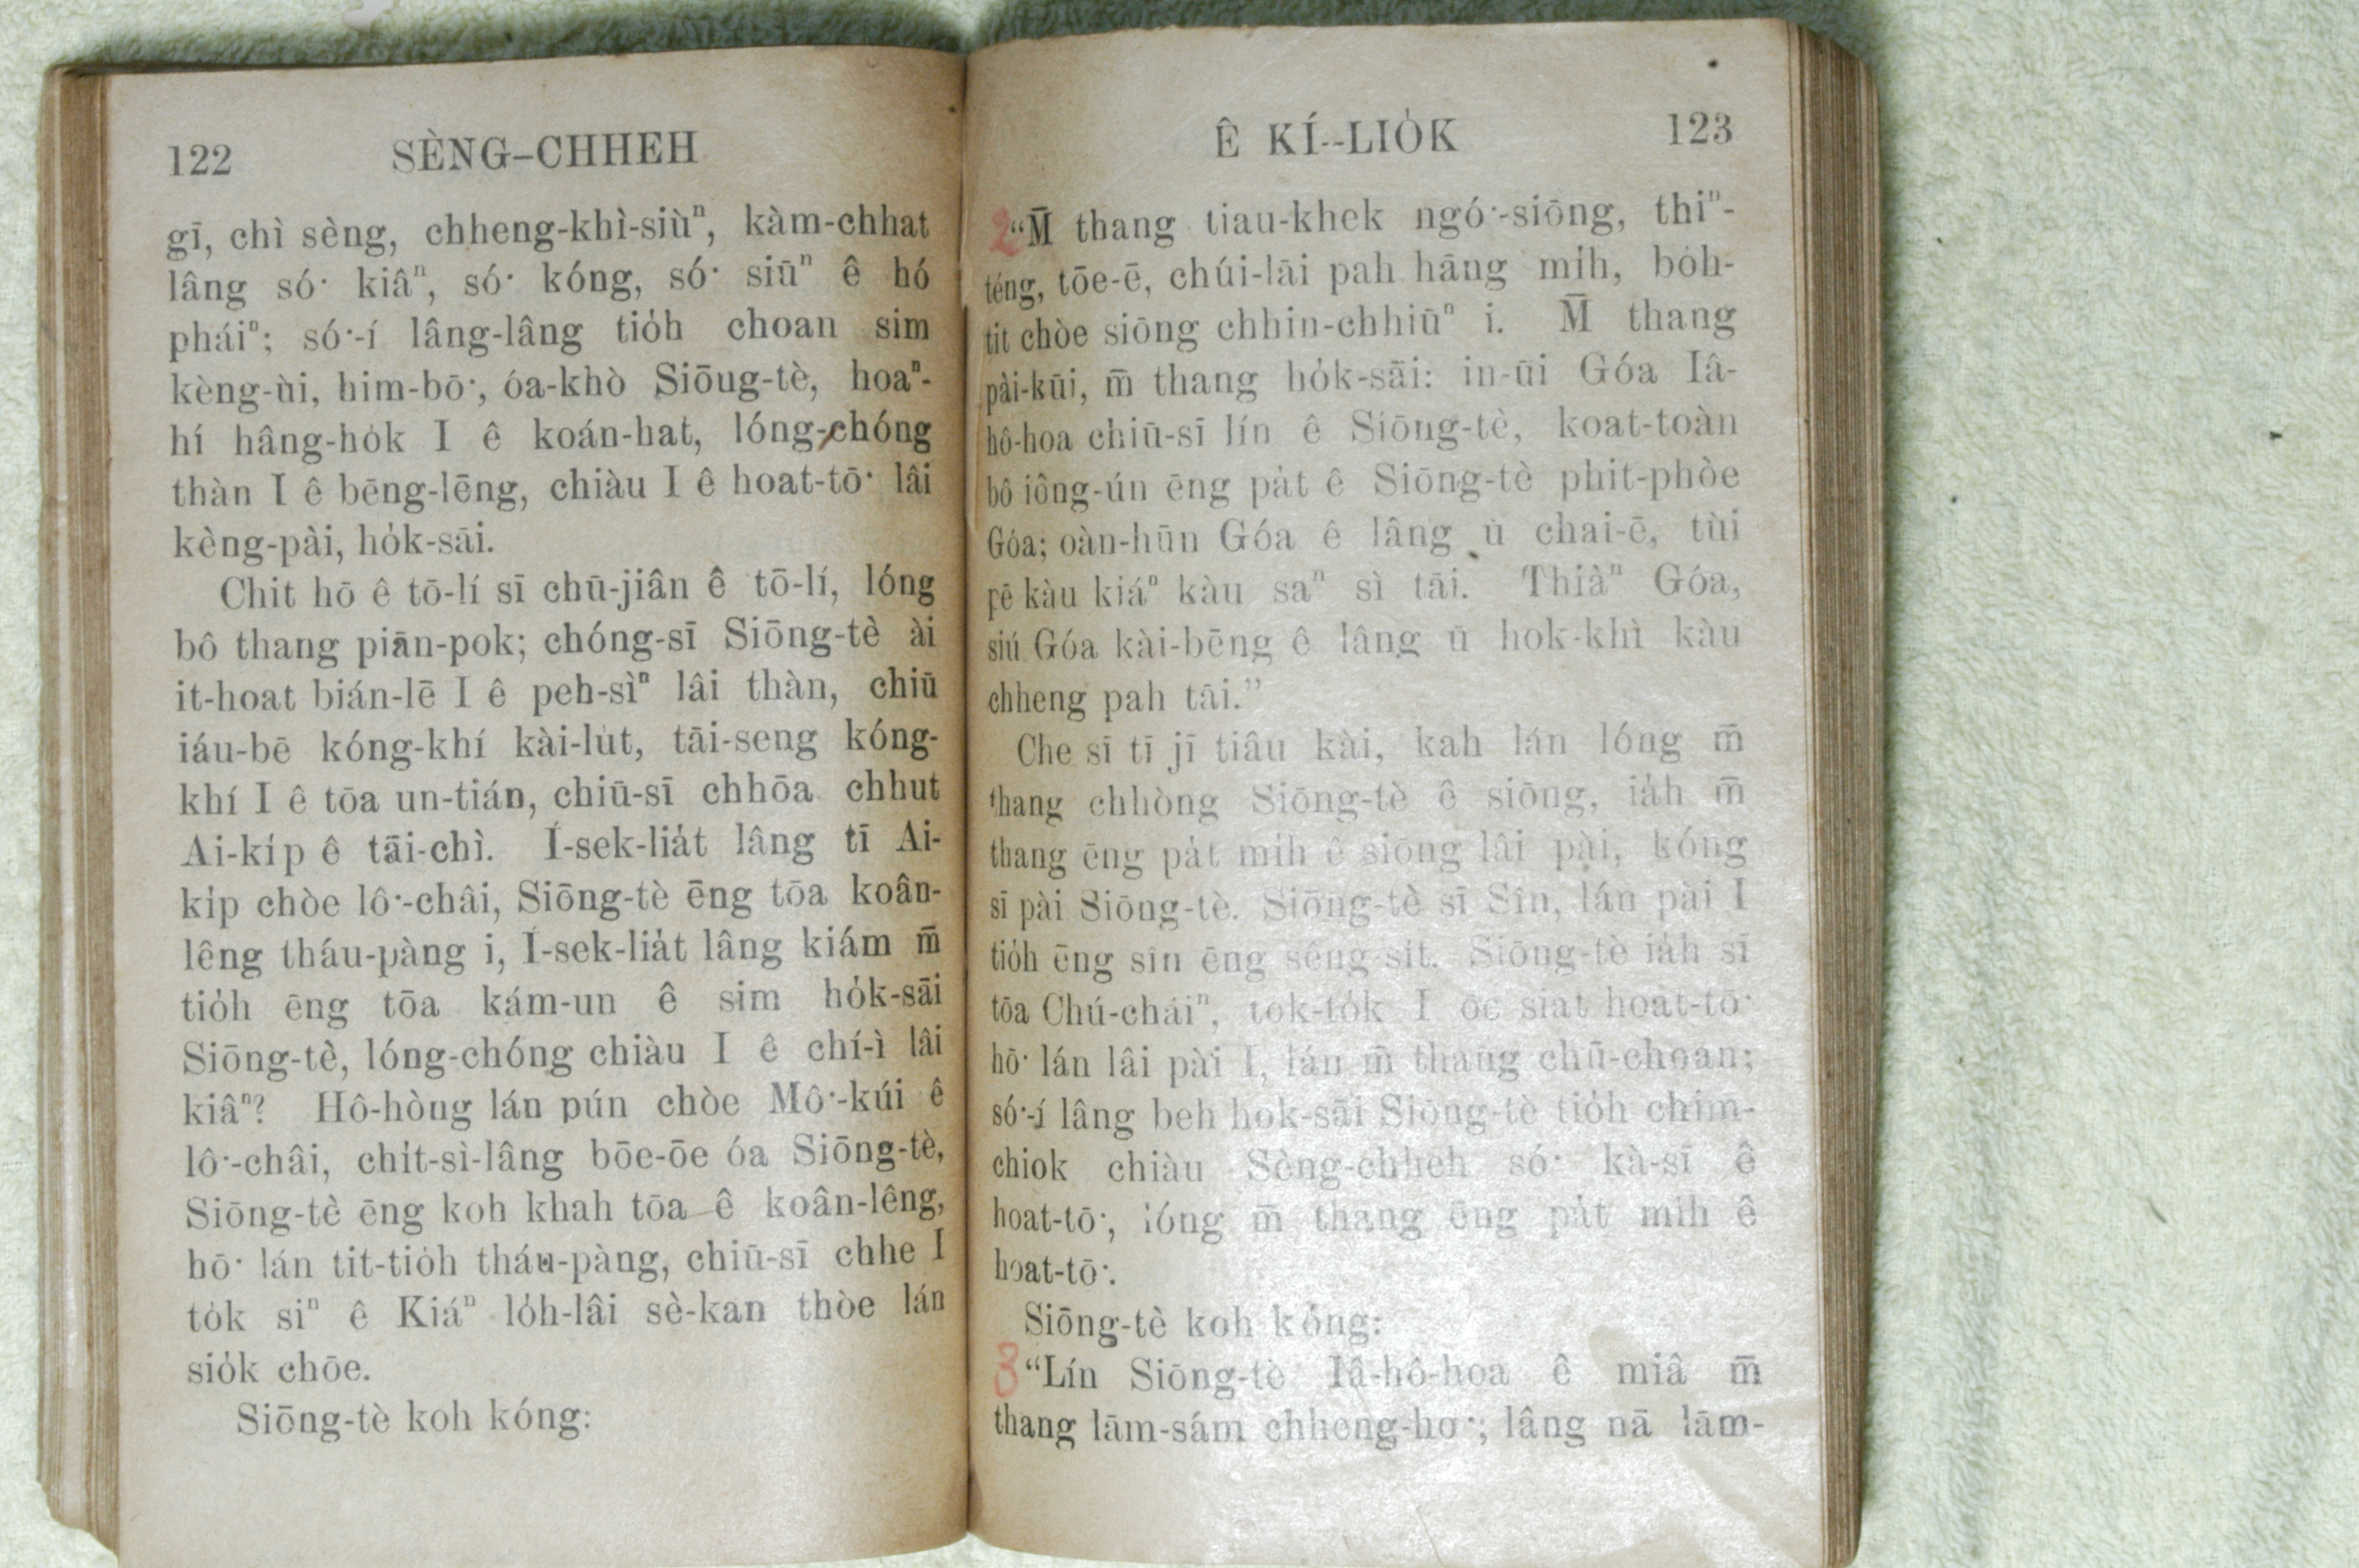 122 SÈNG-CHHEH
gī, chì sèng, chheng-khì-siùⁿ, kàm-chhat
lâng só͘ kiâⁿ, só͘ kóng, só͘ siūⁿ ê hó
pháiⁿ; só͘-í lâng-lâng tio̍h choan sim
kèng-ùi, him-bō͘, óa-khò Siōug-tè, hoaⁿ-
hí hâng-ho̍k I ê koán-hat, lóng-chóng
thàn I ê bēng-lēng, chiàu I ê hoat-tō͘ lâi
kèng-pài, ho̍k-sāi.
Chit hō ê tō-lí sī chū-jiân ê tō-lí, lóng
bô thang piān-pok; chóng-sī Siōng-tè ài
it-hoat bián-lē I ê peh-sìⁿ lâi thàn, chiū
iáu-bē kóng-khí kài-lu̍t, tāi-seng kóng-
khí I ê tōa un-tián, chiū-sī chhōa chhut
Ai-kíp ê tāi-chì. Í-sek-lia̍t lâng tī Ai-
ki̍p chòe lô͘-châi, Siōng-tè ēng tōa koân-
lêng tháu-pàng i, Í-sek-lia̍t lâng kiám m̄
tio̍h ēng tōa kám-un ê sim ho̍k-sāi
Siōng-tè, lóng-chóng chiàu I ê chí-ì lâi
kiâⁿ? Hô-hòng lán pún chòe Mô͘-kúi ê
lô͘-châi, chi̍t-sì-lâng bōe-ōe óa Siōng-tè,
Siōng-tè ēng koh khah tōa ê koân-lêng,
hō͘ lán tit-tio̍h tháu-pàng, chiū-sī chhe I
to̍k siⁿ ê Kiáⁿ lo̍h-lâi sè-kan thòe lán
sio̍k chōe.
Siōng-tè koh kóng:
Ê KÍ--LIO̍K 123
2 “M̄ thang tiau-khek ngó͘-siōng, thiⁿ-
téng, tōe-ē, chúi-lāi pah hāng mih, bo̍h-
tit chòe siōng chhin-chhiūⁿ i. M̄ thang
pài-kūi, m̄ thang ho̍k-sāi: in-ūi Góa Iâ-
hô-hoa chiū-sī lín ê Siōng-tè, koat-toàn
bô iông-ún ēng pa̍t ê Siōng-tè phit-phòe
Góa; oàn-hūn Góa ê lâng ū chai-ē, tùi
pē kàu kiáⁿ kàu saⁿ sì tāi. Thiàⁿ Góa,
siú Góa kài-bēng ê lâng ū hok-khì kàu
chheng pah tāi.”
Che sī tī jī tiâu kài, kah lán lóng m̄
thang chhòng Siōng-tè ê siōng, ia̍h m̄
thang ēng pa̍t mi̍h ê siōng lâi pài, kóng
sī pài Siōng-tè. Siōng-tè sī Sîn, lán pài I
tio̍h ēng sîn ēng sêng-si̍t. Siōng-tè ia̍h sī
tōa Chú-cháiⁿ, tok-to̍k I ōe siat hoat-tō͘
hō͘ lán lâi pài I, lán m̄ thang chū-choan;
só͘-í lâng beh ho̍k-sāi Siōng-tè tio̍h chim-
chiok chiàu Sèng-chheh só͘ kà-sī ê
hoat-tō͘, lóng m̄ thang ēng pa̍t mih ê
hoat-tō͘.
Siōng-tè koh kóng:
3 “Lín Siōng-tè Iâ-hô-hoa ê miâ m̄
thang lām-sám chheng-ho͘; lâng nā lām-